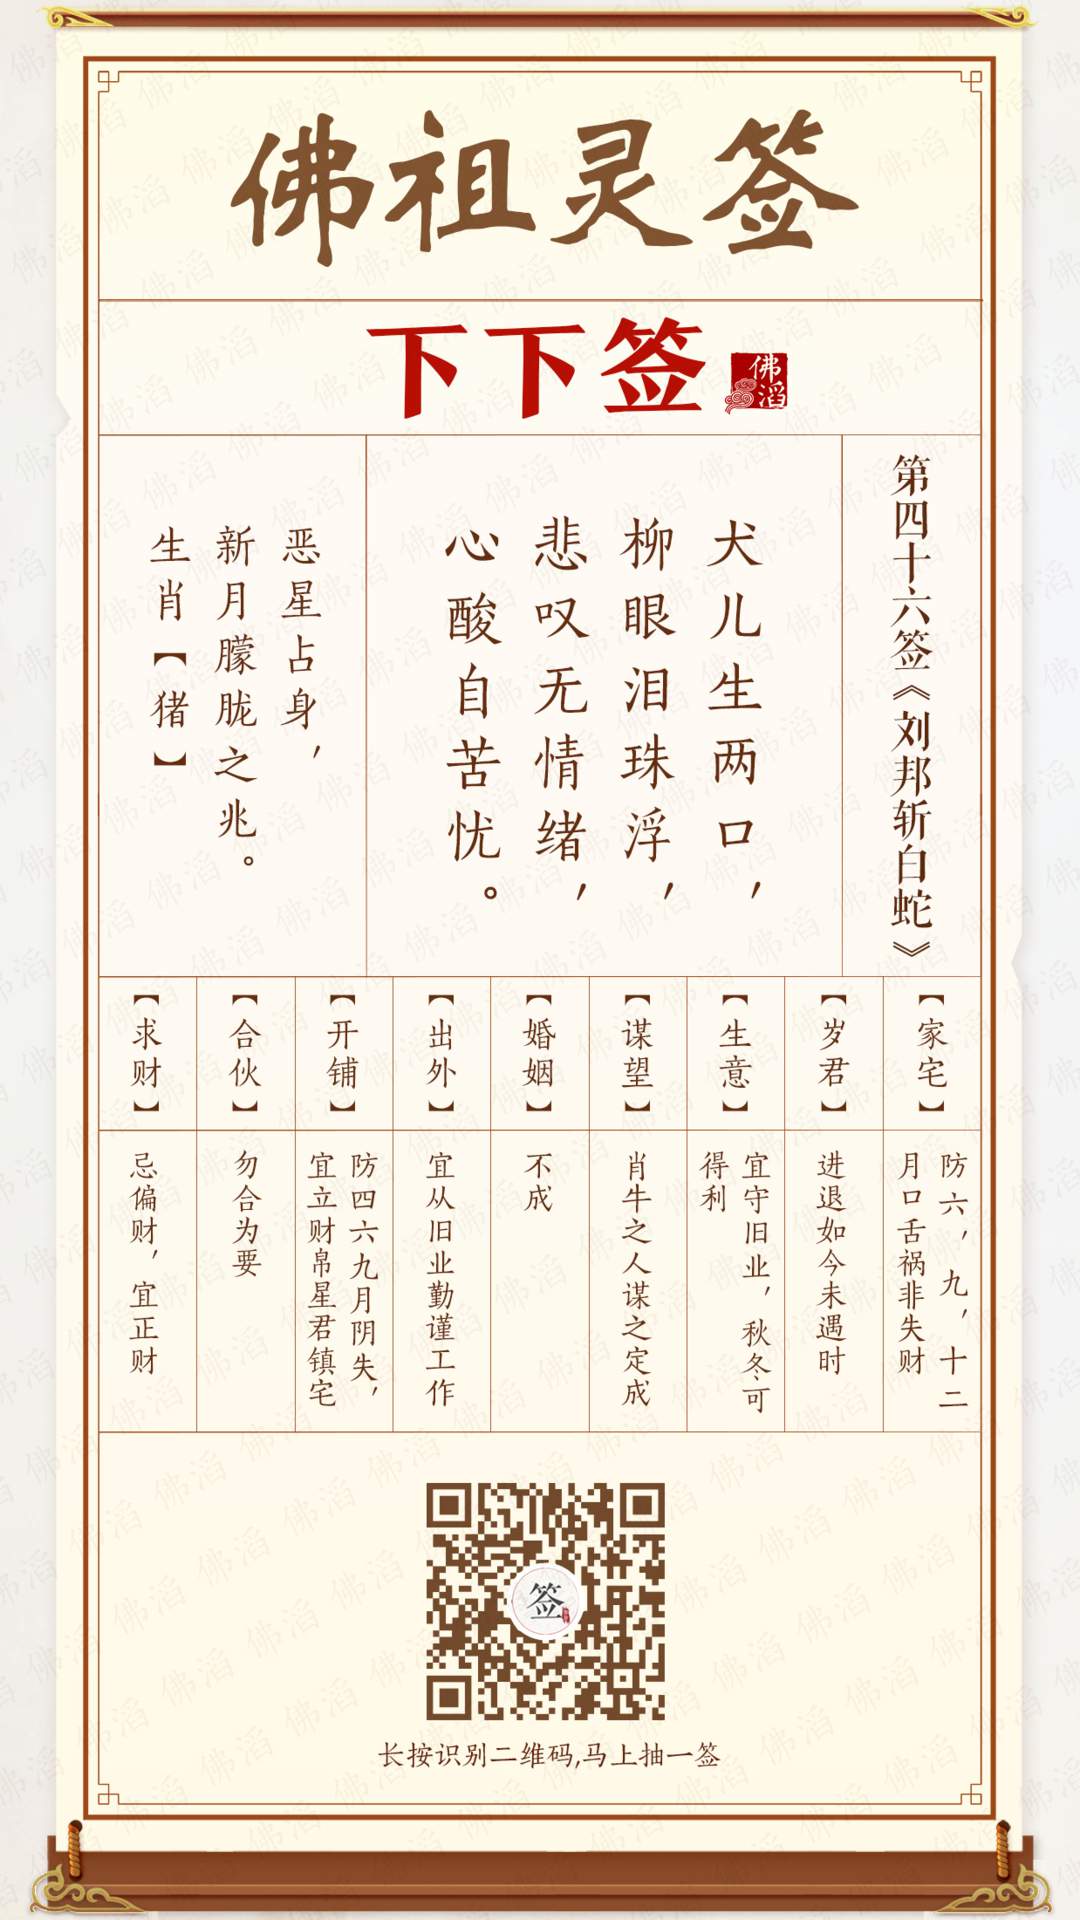 佛祖灵签
下下签
佛滔
第四十六签《刘邦斩白蛇》
犬儿生两口，
柳眼泪珠浮，
悲叹无情绪，
心酸自苦忧。
恶星占身，
新月朦胧之兆。
生肖【猪】
【家宅】
防六，九，十二
月口舌祸非失财
【岁君】
进退如今未遇时
【生意】
宜守旧业，秋冬可
得利
【谋望】
肖牛之人谋之定成
【婚姻】
不成
【出外】
宜从旧业勤谨工作
【开铺】
防四六九月阴失，
宜立财帛星君镇宅
【合伙】
勿合为要
【求财】
忌偏财，宜正财
签
长按识别二维码,马上抽一签